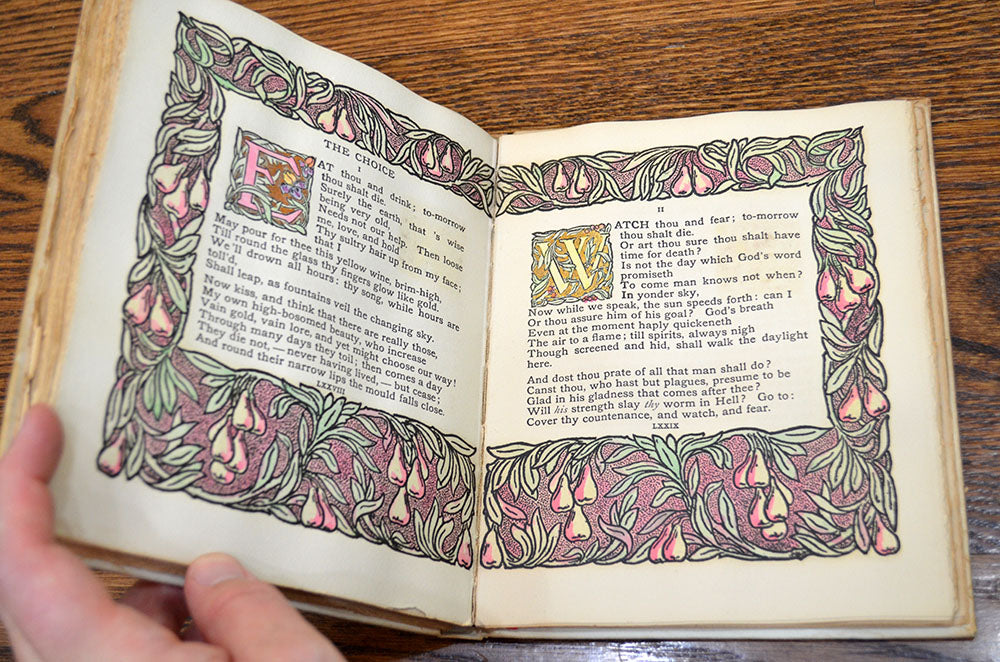 THE CHOICE
I
EAT thou and drink; to-morrow
thou shalt die.
Surely the earth, that 's wise
being very old,
Needs not our help. Then loose
me, love, and hold
Thy sultry hair up from my face;
that I
May pour for thee this yellow wine, brim-high,
Till round the glass thy fingers glow like gold.
We 'll drown all hours: thy song, while hours are
toll'd,
Shall leap, as fountains veil the changing sky.
Now kiss, and think that there are really those,
My own high-bosomed beauty, who increase
Vain gold, vain lore, and yet might choose our way!
Through many days they toil; then comes a day
They die not, — never having lived, — but cease;
And round their narrow lips the mould falls close.
LXXVIII
II
WATCH thou and fear; to-morrow
thou shalt die.
Or art thou sure thou shalt have
time for death?
Is not the day which God's word
promiseth
To come man knows not when?
In yonder sky,
Now while we speak, the sun speeds forth: can I
Or thou assure him of his goal? God's breath
Even at the moment haply quickeneth
The air to a flame; till spirits, always nigh
Though screened and hid, shall walk the daylight
here.
And dost thou prate of all that man shall do?
Canst thou, who hast but plagues, presume to be
Glad in his gladness that comes after thee?
Will his strength slay thy worm in Hell? Go to:
Cover thy countenance, and watch, and fear.
LXXIX